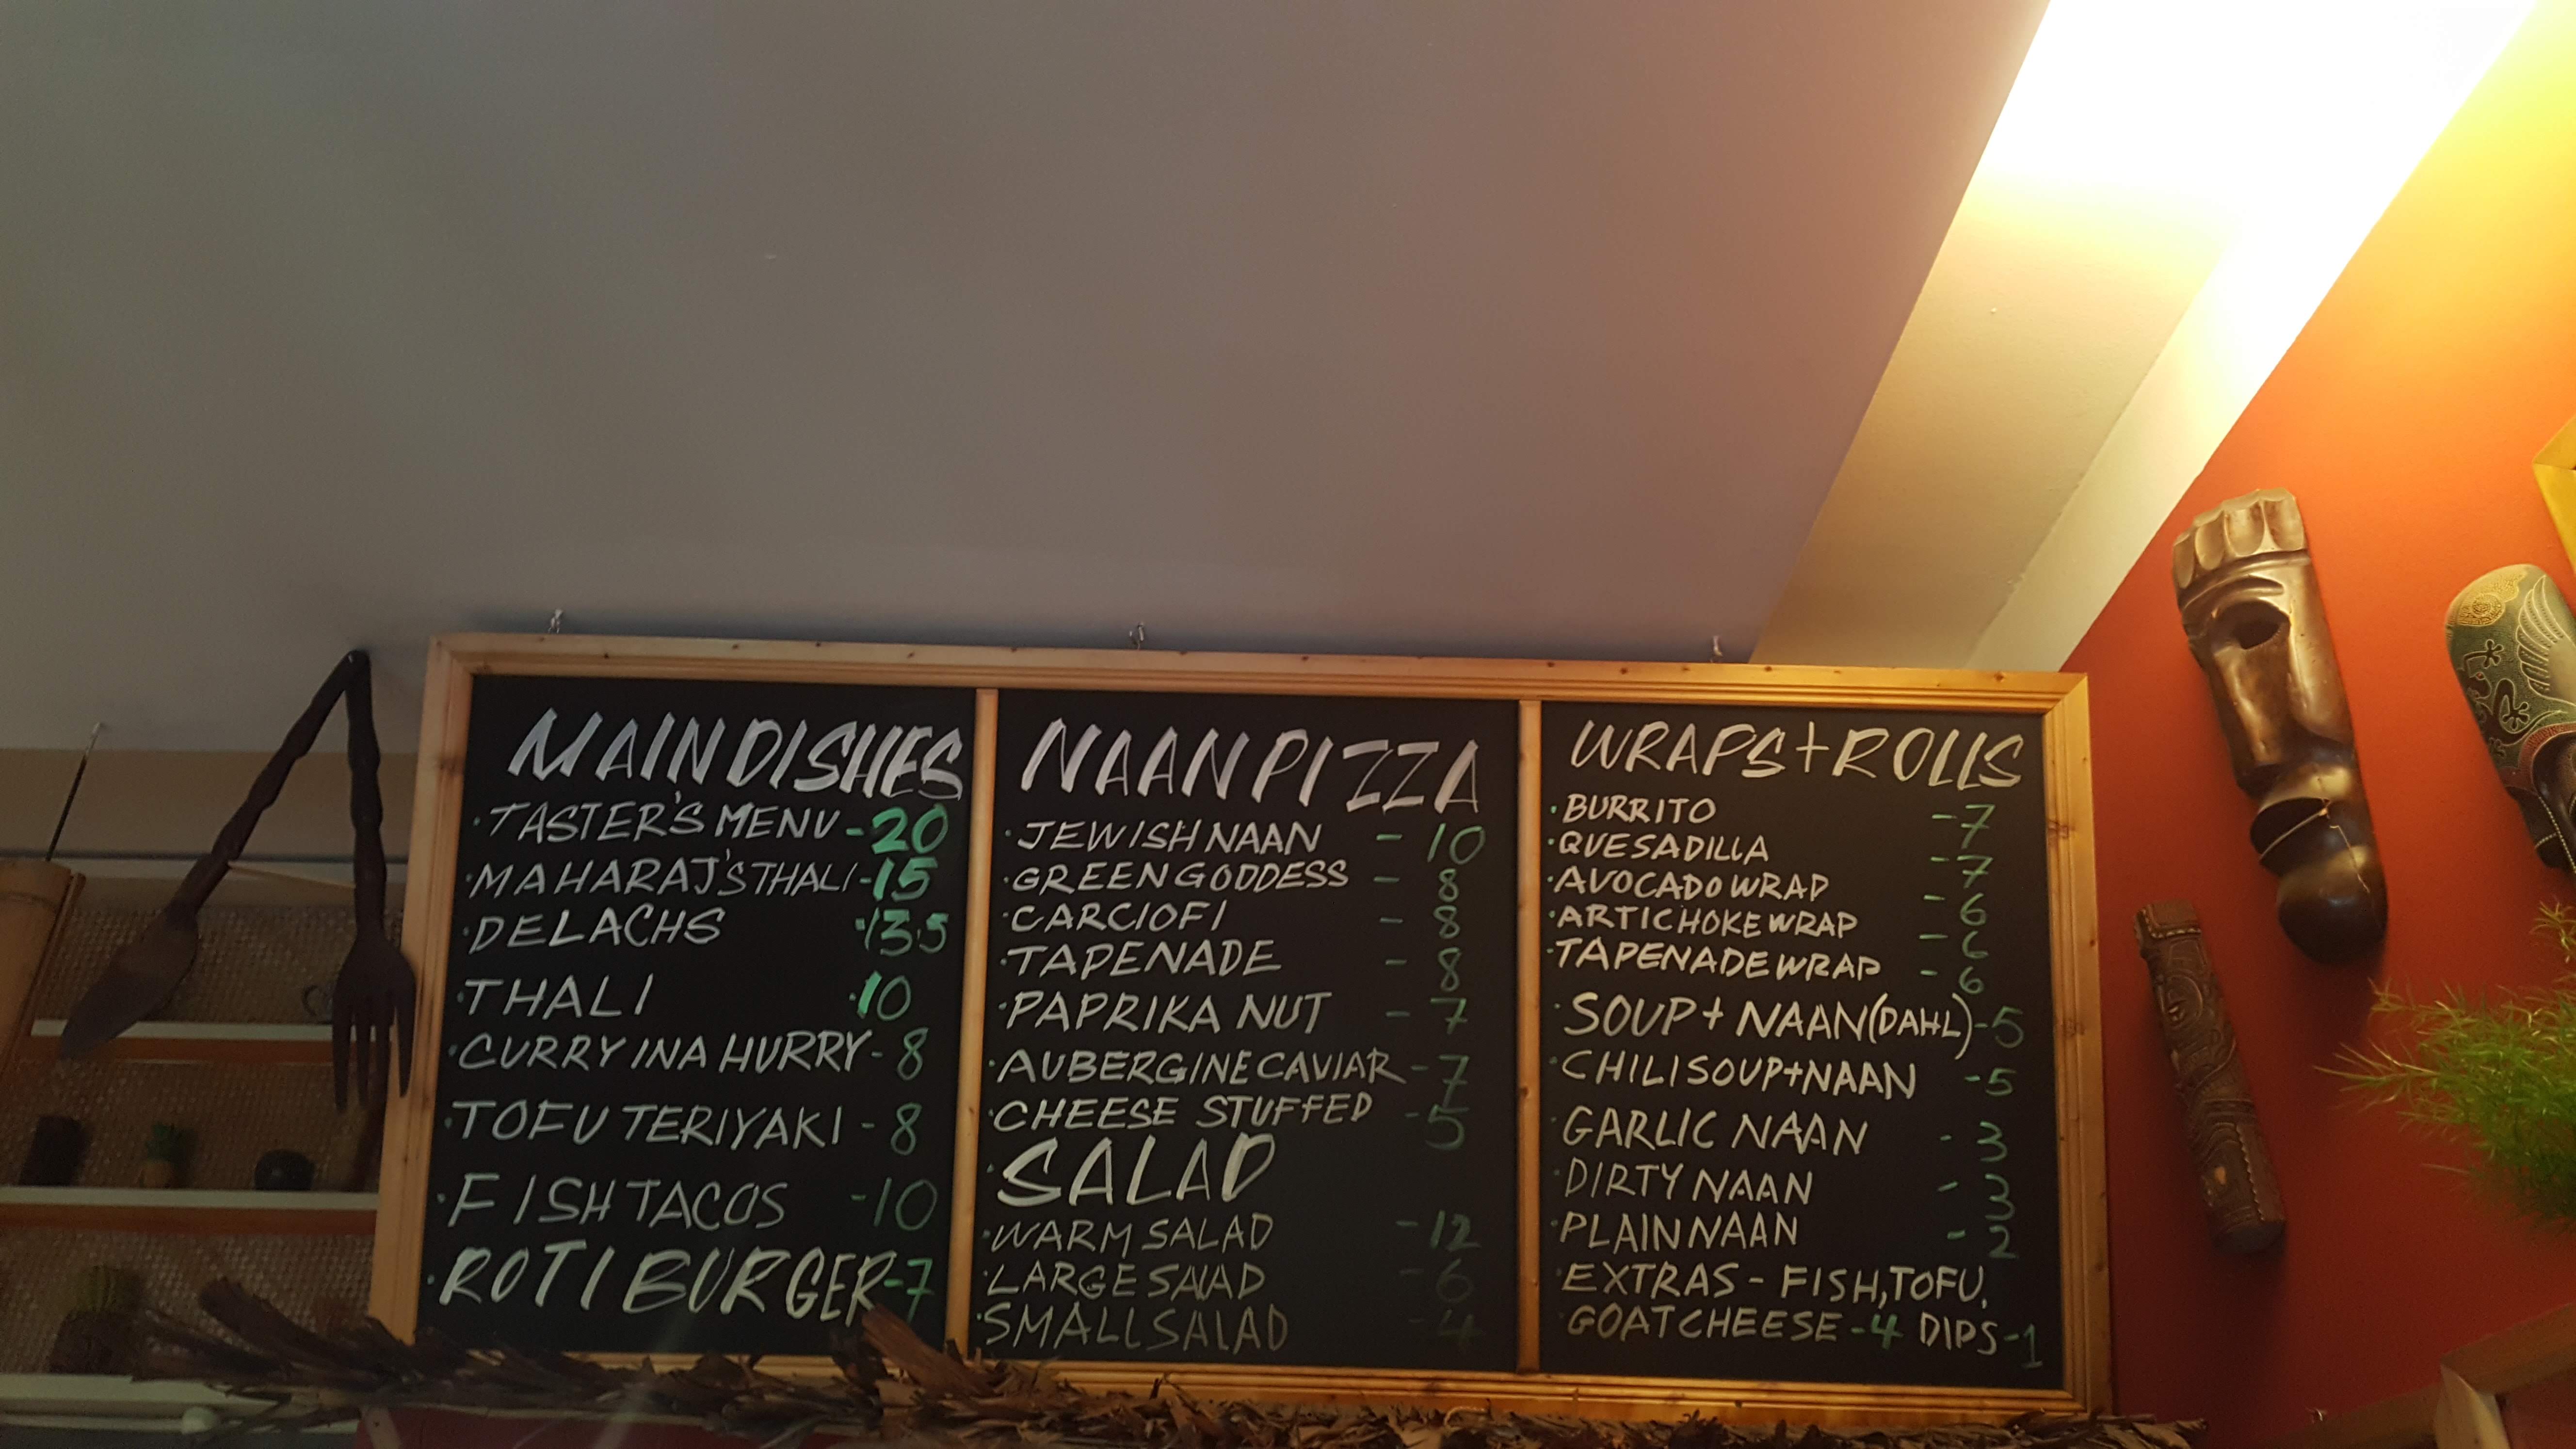 MAIN DISHES
· TASTER'S MENU - 20
· MAHARAJ'S THALI - 15
· DELACHS · 13.5
· THALI · 10
· CURRY IN A HURRY - 8
· TOFU TERIYAKI - 8
· FISH TACOS - 10
· ROTI BURGER - 7
NAAN PIZZA
· JEWISH NAAN - 10
· GREEN GODDESS - 8
· CARCIOFI - 8
· TAPENADE - 8
· PAPRIKA NUT - 7
· AUBERGINE CAVIAR - 7
· CHEESE STUFFED - 5
· SALAD
· WARM SALAD - 12
· LARGE SALAD - 6
· SMALL SALAD - 4
WRAPS + ROLLS
· BURRITO - 7
· QUESADILLA - 7
· AVOCADO WRAP - 6
· ARTICHOKE WRAP - 6
· TAPENADE WRAP - 6
· SOUP + NAAN (DAHL) - 5
· CHILI SOUP + NAAN - 5
· GARLIC NAAN - 3
· DIRTY NAAN - 3
· PLAIN NAAN - 2
· EXTRAS - FISH, TOFU,
GOAT CHEESE - 4 DIPS - 1